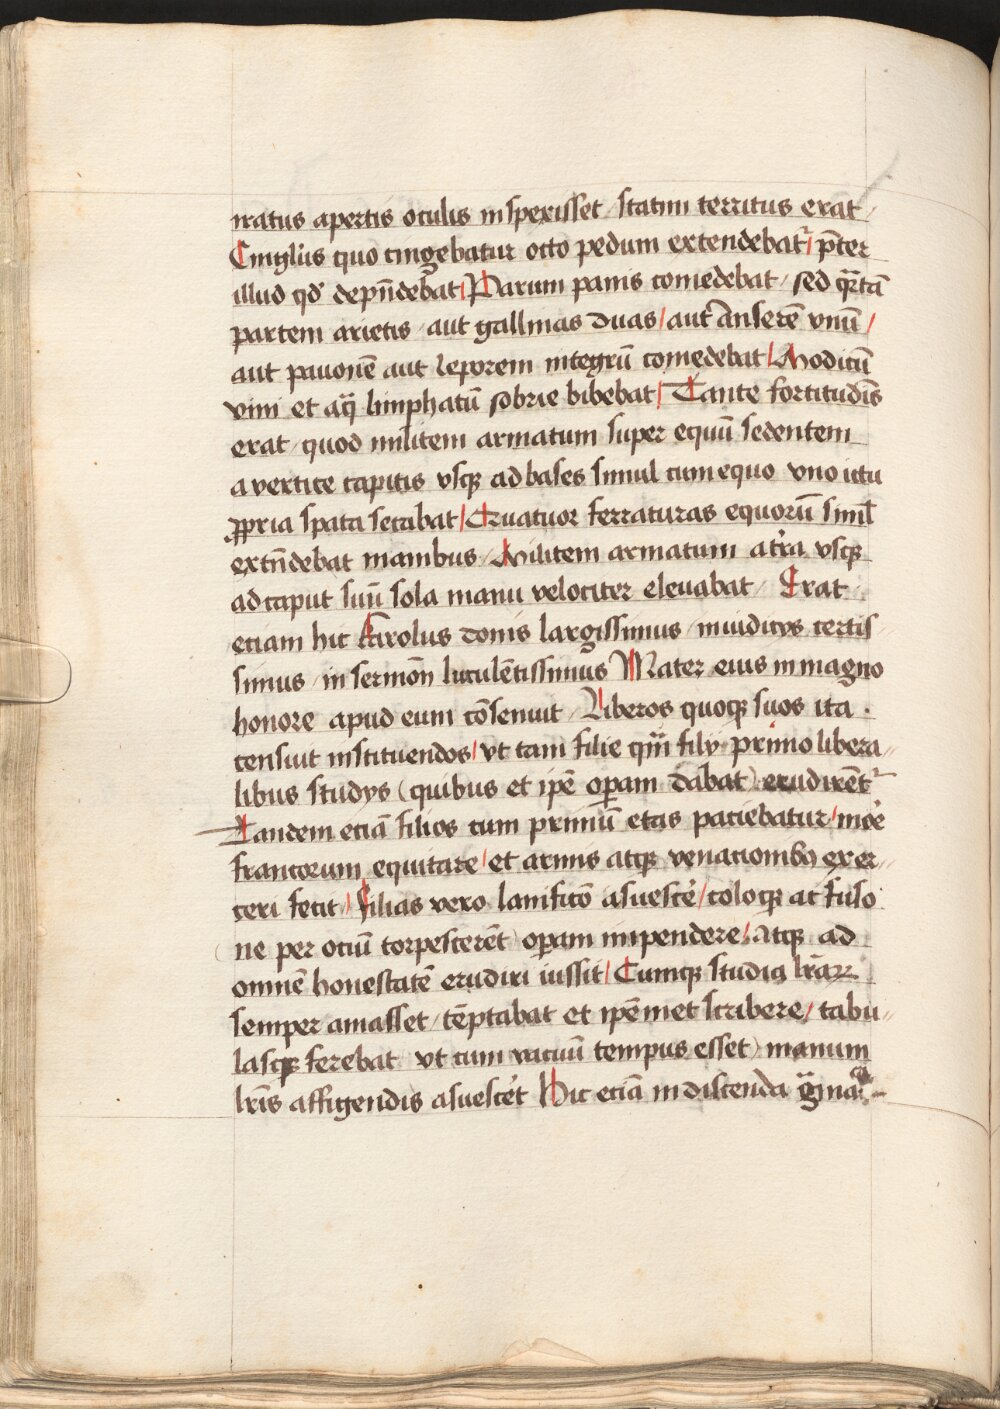 iratus apertis oculis inspexisset / statim territus erat /
Cingl'us quo cingebatur octo pedum extendebat᷑ / p̄ter
illud qd' depn̄debat / Parum panis comedebat / sed qr̄tā
partem arietis / aut gallinas duas / aut Anserē vnū /
aut pauonē aut leporem integrū comedebat / Modicū
vini et aq̄ limphatū sobrie bibebat / Tante fortitudīs
erat / quod militem armatum super equū sedentem
a vertice capitis vsqꝫ ad bases simul cum equo vno ictu
ꝓpria spata secabat / Quatuor ferraturas equorū simĺ
extn̄debat manibus / Militem armatum a tr̄a vsqꝫ
ad caput suū sola manu velociter eleuabat / Erat
etiam hic Karolus donis largissimus / iniudicijs certis
simus / in sermōn luculētissimus Mater eius in magno
honore apud eum cōsenuit / Liberos quoqꝫ suos ita
censuit instituendos / vt tam filie qm̄ filij primo libera„
libus studijs (quibus et ip̄e oꝑam dabat) erudirēt᷑
Tandem etiā filios cum primū etas paciebatur / more̓
francorum equitare / et armis atqꝫ venacionibꝰ exer„
ceri fecit / Filias vero lanificō asuesce̓ / coloqꝫ ac fuso
(ne per ociū torpescerēt) oꝑam impendere / Atqꝫ ad
omnē honestatē erudiri iussit / Cumqꝫ studia lr̄aꝝ
semper amasset / tēptabat et ip̄emet scribere / tabu„
lasqꝫ ferebat vt cum vacuū tempus esset) manum
lr̄is affigendis asuesce̓t Hic etiā in discenda g̈ma